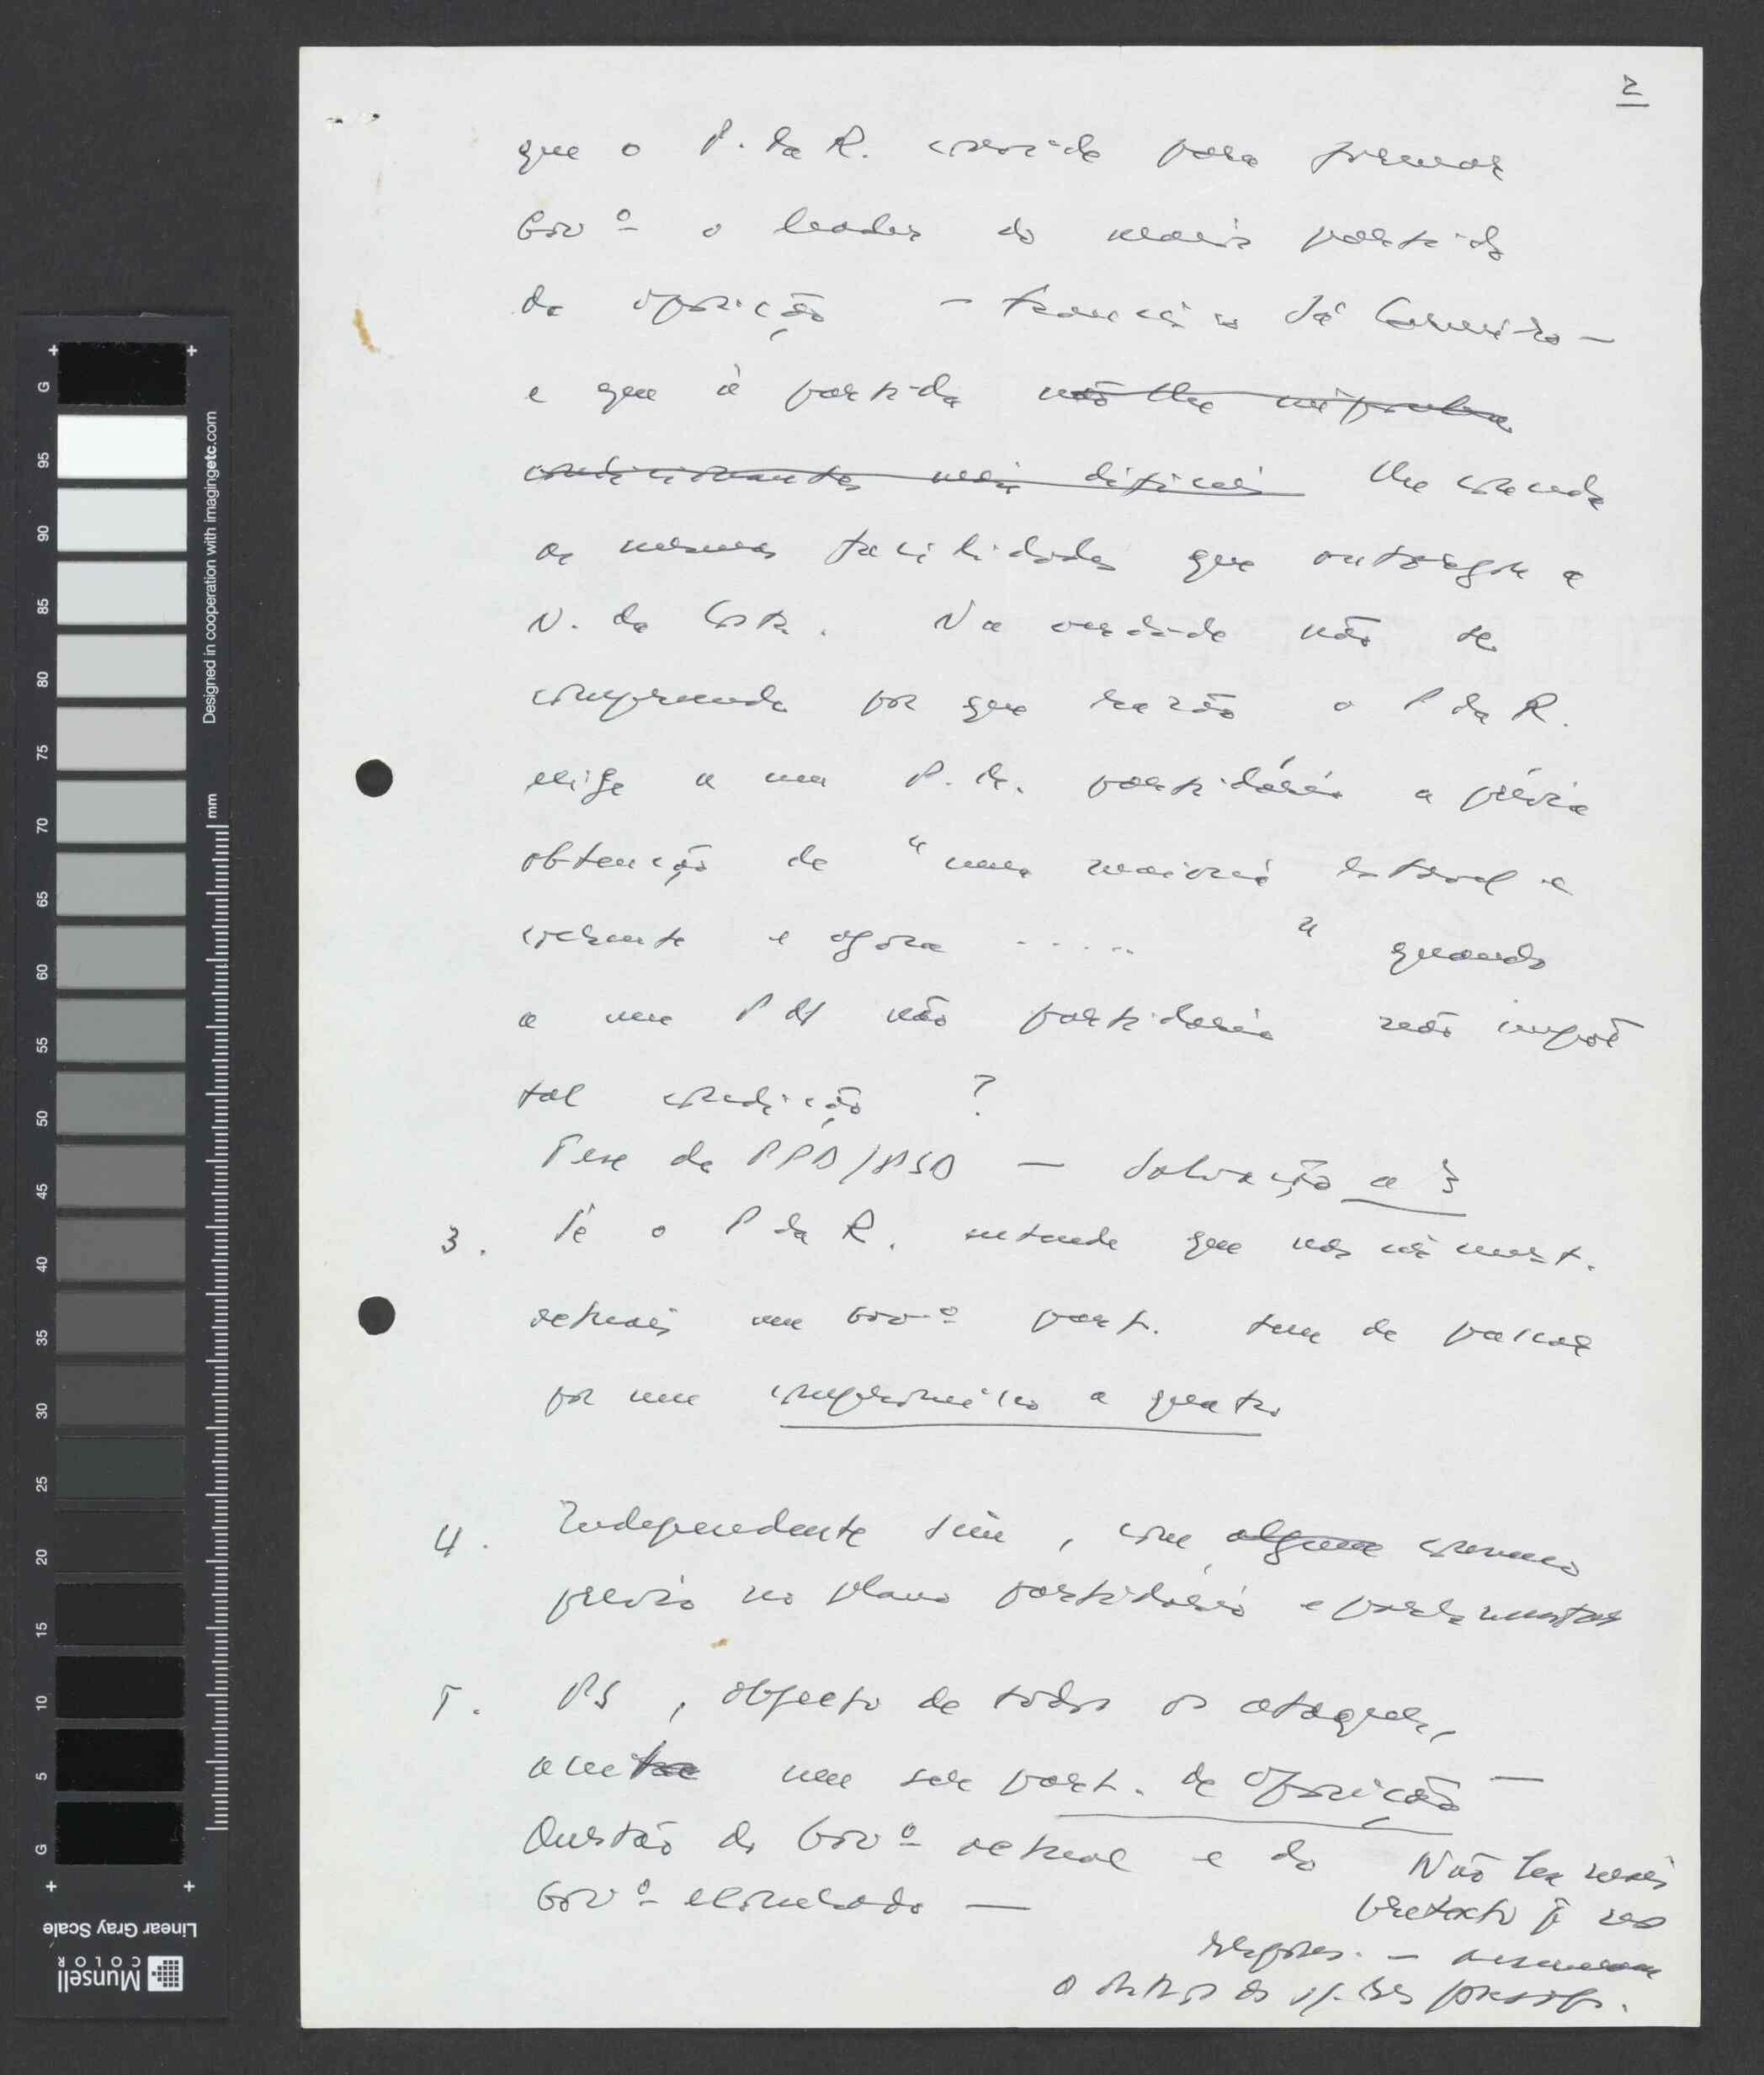 2
que o P. da R. convide para formar
Govº o leader do maior partido
da oposição – Francisco Sá Carneiro –
e que à partida não lhe imponha
condicionantes mais difíceis lhe conceda
as mesmas facilidades que outorgou a
N. da Costa. Na verdade não se
compreende por que razão o P da R.
exige a um P. M. partidário a prévia
obtenção de "uma maioria estável e
coerente e agora ..... " quando
a um P M não partidário não impõe
tal condição ?
Tese do PPD/PSD — Salvação a 3
3. Se o P da R. entende que nas circunst.
actuais um Govº part. tem de passar
por um compromisso a quatro
4. Independente sim, com algum consenso
prévio no plano partidário e parlamentar
5. PS, objecto de todos os ataques,
um ser part. de oposição —
Questão do Govº actual e do
Govº exonerado —
Não ter mais
pretexto
o de
G
95
90
85
80
75
70
65
60
55
50
45
40
35
30
25
20
15
10
5
G
mm
Designed in cooperation with imagingetc.com
Linear Gray Scale
Munsell
COLOR